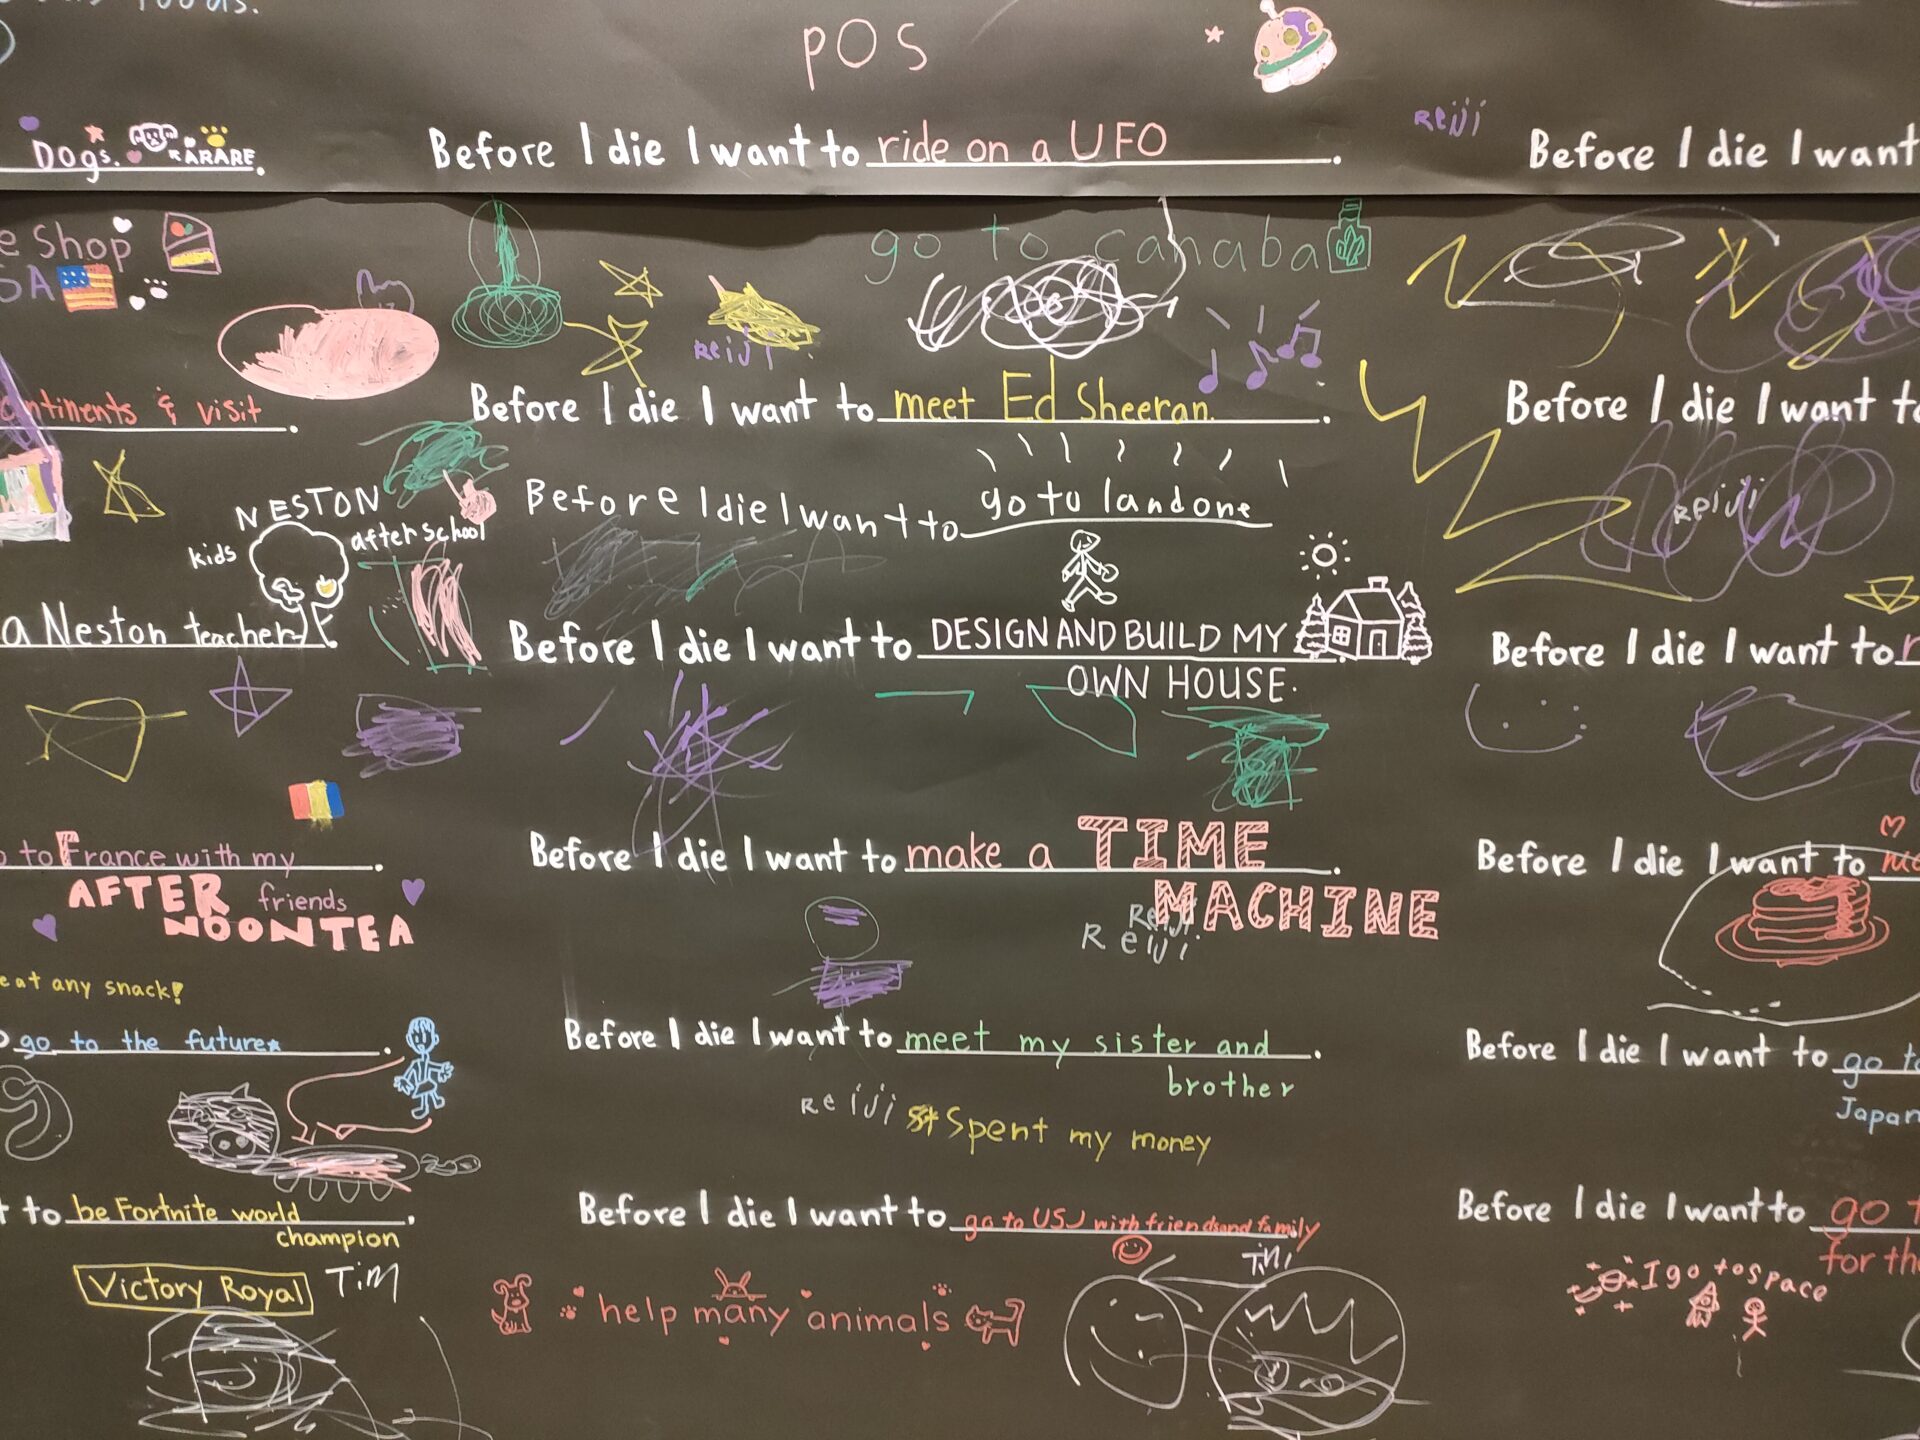 POS
Dogs. KARARE.
Before I die I want to ride on a UFO.
Reiji
Before I die I want
e Shop
SA
go to canaba
Reiji
ntinents & visit.
Before I die I want to meet Ed Sheeran.
Before I die I want to
NESTON
kids
after school
Before I die I want to go to landone
Reiji
a Neston teacher.
Before I die I want to DESIGN AND BUILD MY
OWN HOUSE.
Before I die I want to
to France with my.
AFTER friends
NOONTEA
Before I die I want to make a TIME.
MACHINE
Reiji
Reiji
Before I die I want to
eat any snack!
go to the future.
Before I die I want to meet my sister and.
brother
Reiji Spent my money
Before I die I want to go to
Japan
t to be Fortnite world.
champion
Victory Royal TiM
Before I die I want to go to USJ with friends and family.
TiM
help many animals
Before I die I want to go
for the
I go to space